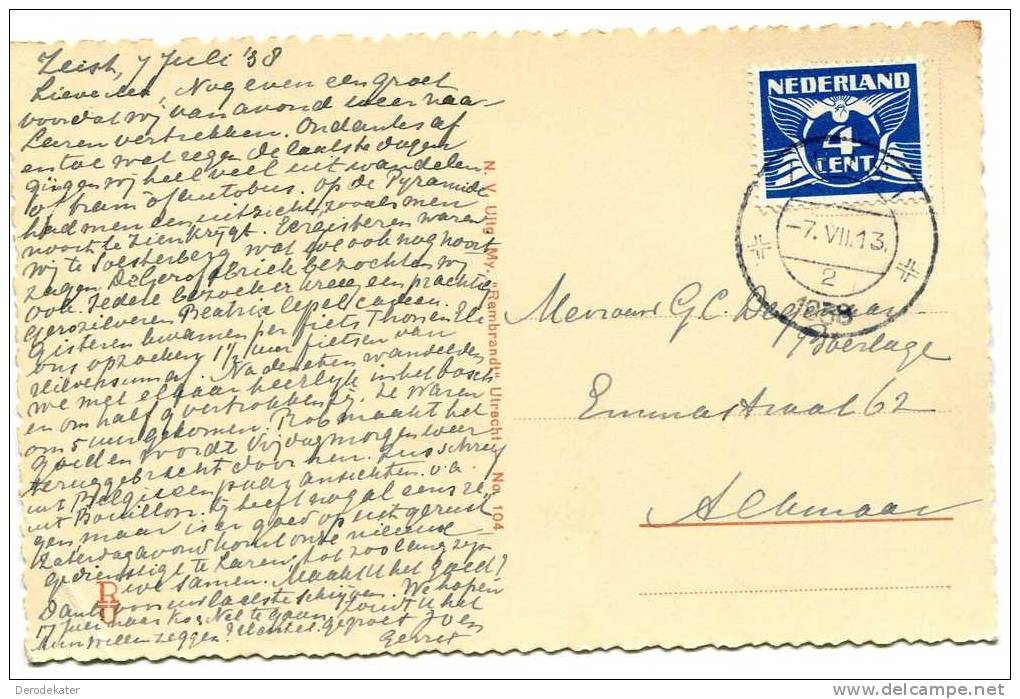 Zeist, 7 Juli '38
Lieve Moe, Nog even een groet
voordat wij van avond weer naar
Laren vertrekken. Ondanks af
en toe wat regen de laatste dagen
gingen wij heel veel uit wandelen
of tram of autobus. Op de Pyramide
had men een uitzicht, zooals men
nooit te zien krijgt. Eergisteren waren
wij te Soesterberg wat we ook nog nooit
zagen. De Gerofabriek bezochten wij
ook. Iedere bezoeker kreeg een prachtig
Gerozilveren Beatrix lepel cadeau.
Gisteren kwamen per fiets Thor en Eli
ons opzoeken, 1½ uur fietsen van
Hilversum af. Na den eten wandelden
we met elkaar heerlijk in het bosch
en om half 9 vertrokken ze. Ze waren
om 5 uur gekomen. Rob maakt het
goed en wordt Vrijdagmorgen weer
teruggebracht door hen. Zus schreef
uit België een paar ansichten o.a.
uit Bouillon. Zij heeft nogal eens re-
gen maar is er goed op uitgerust.
Zaterdagavond komt onze nieuwe
gedienstige te Laren, tot zoo lang zijn
we samen. Maakt U het goed?
Dank voor uw laatste schrijven. We hopen
17 Juli naar Ko en Nel te gaan, zoudt U het
hun willen zeggen? Hartel. gegroet Joh en
Gerrit
N. V. Uitg. My. "Rembrandt" Utrecht No. 104
R
U
NEDERLAND
4
CENT
-7.VII.13.
2
1938
Mevrouw G.C. Degenaar
Emmastraat 62
Alkmaar
Derodekater
delcampe.net